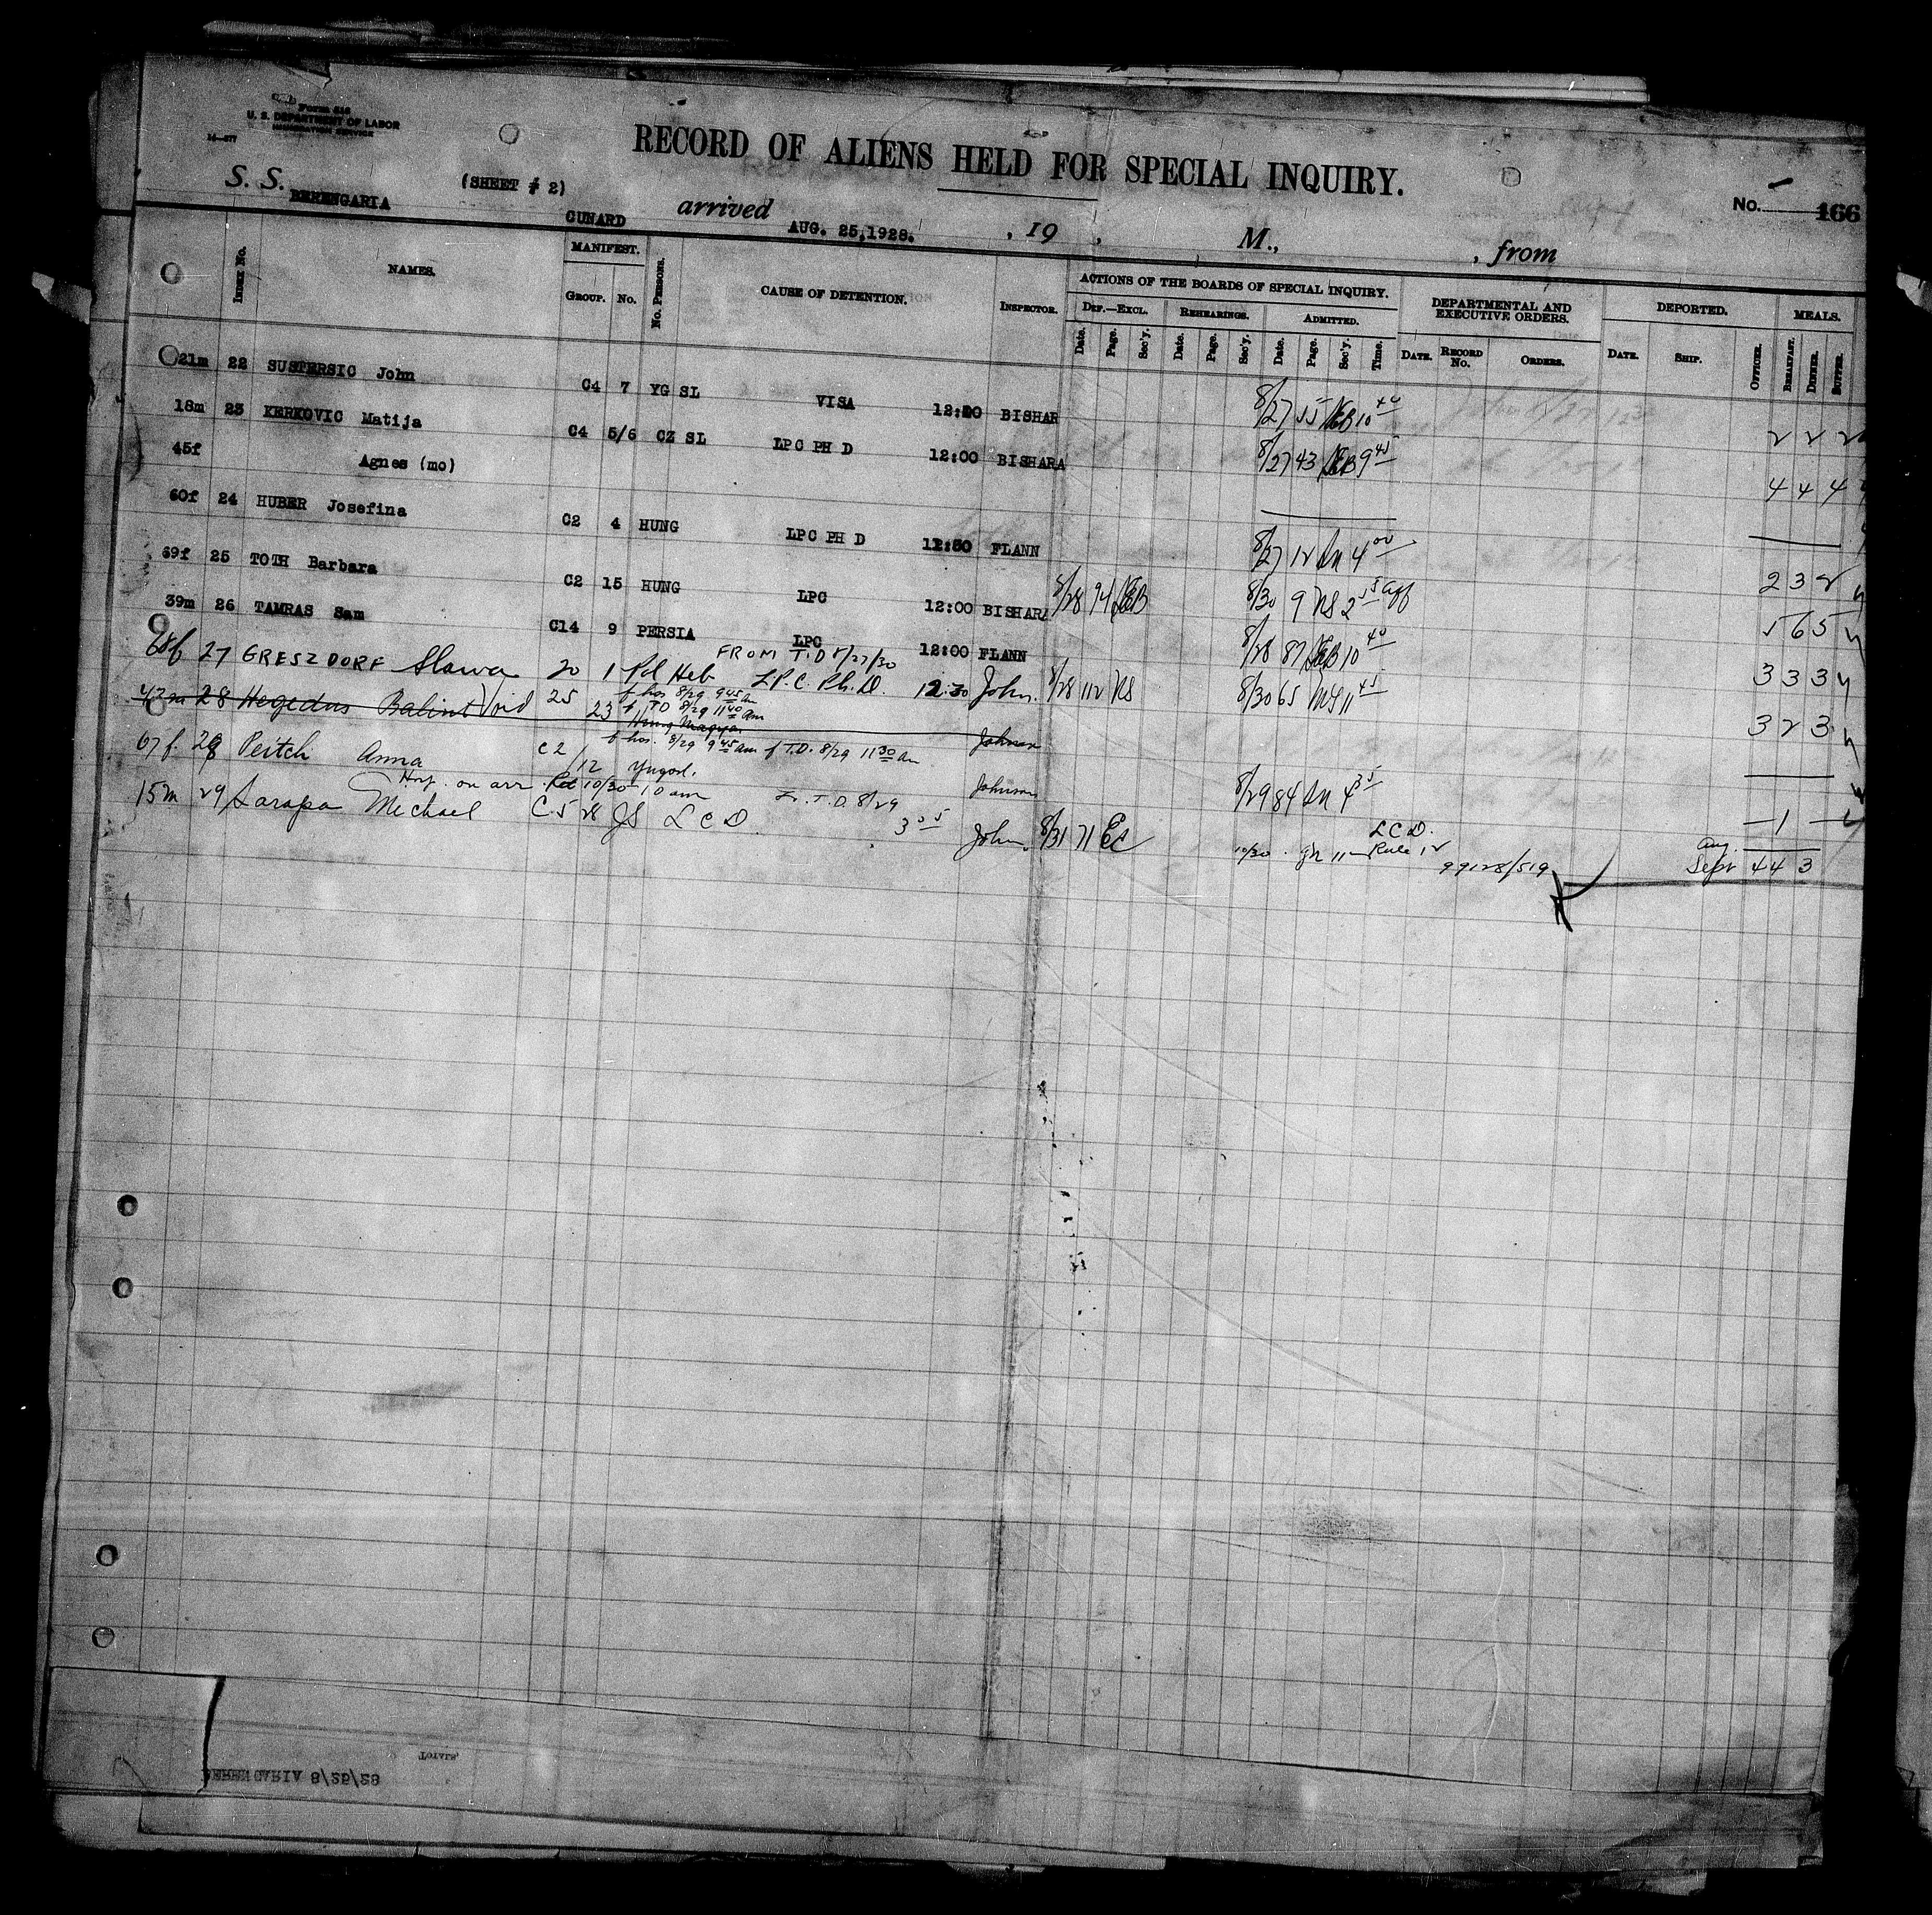 Form 616
U. S. DEPARTMENT OF LABOR
IMMIGRATION SERVICE
14—677
RECORD OF ALIENS HELD FOR SPECIAL INQUIRY.
S. S. BERENGARIA (SHEET # 2) CUNARD arrived AUG. 25,1928. , 19 , M., , from No. 166
INDEX No. NAMES. MANIFEST. GROUP. No. No. PERSONS. CAUSE OF DETENTION. INSPECTOR. ACTIONS OF THE BOARDS OF SPECIAL INQUIRY. DEPARTMENTAL AND EXECUTIVE ORDERS. DEPORTED. MEALS.
DEF.—EXCL. REHEARINGS. ADMITTED.
Date. Page. Sec'y. Date. Page. Sec'y. Date. Page. Sec'y. Time. DATE. RECORD No. ORDERS. DATE. SHIP. OFFICER. BREAKFAST. DINNER. SUPPER.
21m 22 SUSTERSIC John C4 7 YG SL VISA 12:00 BISHAR 8/27 55 10 40 2 2 2
18m 23 KERKOVIC Matija C4 5/6 CZ SL LPC PH D 12:00 BISHARA 8/27 43 9 45 4 4 4
45f Agnes (mo)
60f 24 HUBER Josefina C2 4 HUNG LPC PH D 12:00 FLANN 8/27 12 4 00 2 3 2
69f 25 TOTH Barbara C2 15 HUNG LPC 12:00 BISHARA 8/28 94 8/30 9 NS 2 55 aff 5 6 5
39m 26 TAMRAS Sam C14 9 PERSIA LPC 12:00 FLANN 8/28 87 10 40 3 3 3
FROM T.D 8/27/30
68f 27 GRESZDORF Slawa 20 1 Pol Heb L.P.C. Ph.D. 12:30 John. 8/28 112 NS 8/30 65 11 45 3 2 3
f hos 8/29 9 45 am
f TD 8/29 11 40 am
42m 28 Hegedus Balint Void 25 23 Hung Magyar Johnson
f hos. 8/29 9 45 am f T.D. 8/29 11 30 am
67 f. 28 Peitch Anna C2 12 Yugosl. Johnson 8/29 84 4 35 — 1 —
Hosp. on arr. Rel 10/30 10 am Fr. T.D. 8/29
15m 29 Sarapa Michael C.5 28 L C D 3 55 John. 8/31 71 EC 10/30 11 L C D. Rule 12 99128/519
Aug.
Sept 4 4 3
TOTALS.
BERENGARIA 8/25/28